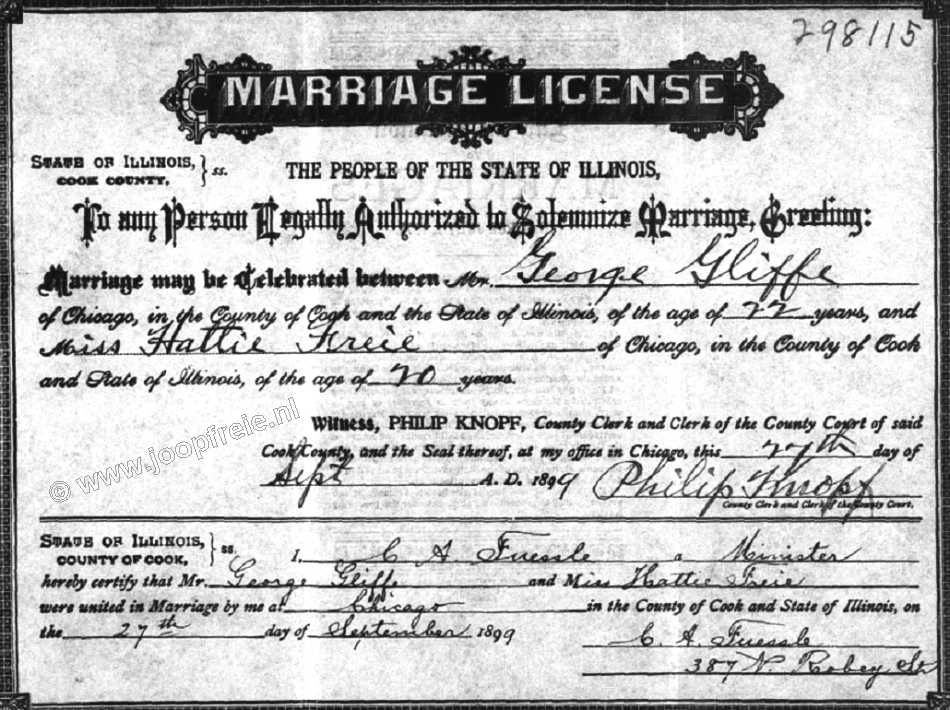 298115
MARRIAGE LICENSE
STATE OF ILLINOIS, } ss. THE PEOPLE OF THE STATE OF ILLINOIS,
COOK COUNTY.
To any Person Legally Authorized to Solemnize Marriage, Greeting:
Marriage may be Celebrated between Mr. George Gliffe
of Chicago, in the County of Cook and the State of Illinois, of the age of 22 years, and
Miss Hattie Freie of Chicago, in the County of Cook
and State of Illinois, of the age of 20 years.
Witness, PHILIP KNOPF, County Clerk and Clerk of the County Court of said
Cook County, and the Seal thereof, at my office in Chicago, this 27th day of
Sept A. D. 1899 Philip Knopf
County Clerk and Clerk of the County Court.
© www.joopfreie.nl
STATE OF ILLINOIS, } ss. I, C A Fuessle a Minister
COUNTY OF COOK,
hereby certify that Mr. George Gliffe and Miss Hattie Freie
were united in Marriage by me at Chicago in the County of Cook and State of Illinois, on
the 27th day of September 1899
C. A. Fuessle
387 N. Robey St